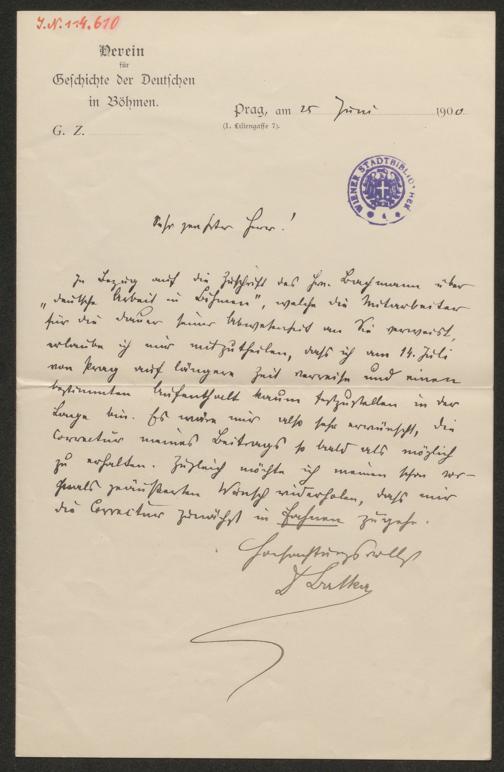 J.N. 114.610
Verein
für
Geschichte der Deutschen
in Böhmen.
G. Z.
Prag, am 25 Juni 1900
(I. Liliengasse 7).
WIENER STADTBIBLIOTHEK
Sehr geehrter Herr!
In Bezug auf die Zuschrift des Hrn. Bachmann über
„deutsche Arbeit in Böhmen", welche die Mitarbeiter
für die Dauer seiner Abwesenheit an Sie verweist,
erlaube ich mir mitzutheilen, dass ich am 14. Juli
von Prag auf längere Zeit verreise und einen
bestimmten Aufenthalt kaum festzustellen in der
Lage bin. Es wäre mir also sehr erwünscht, die
Correctur meines Beitrags so bald als möglich
zu erhalten. Zugleich möchte ich meinen schon vor-
mals geäußerten Wunsch widerholen, dass mir
die Correctur zunächst in Fahnen zugehe.
Hochachtungsvollst
Dr Batka